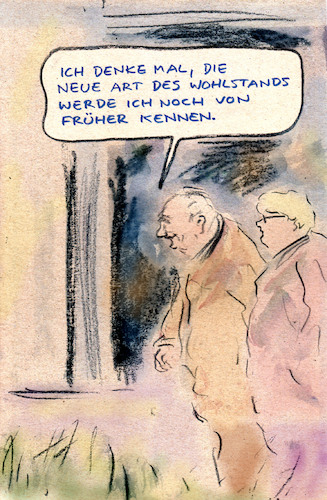 ICH DENKE MAL, DIE
NEUE ART DES WOHLSTANDS
WERDE ICH NOCH VON
FRÜHER KENNEN.